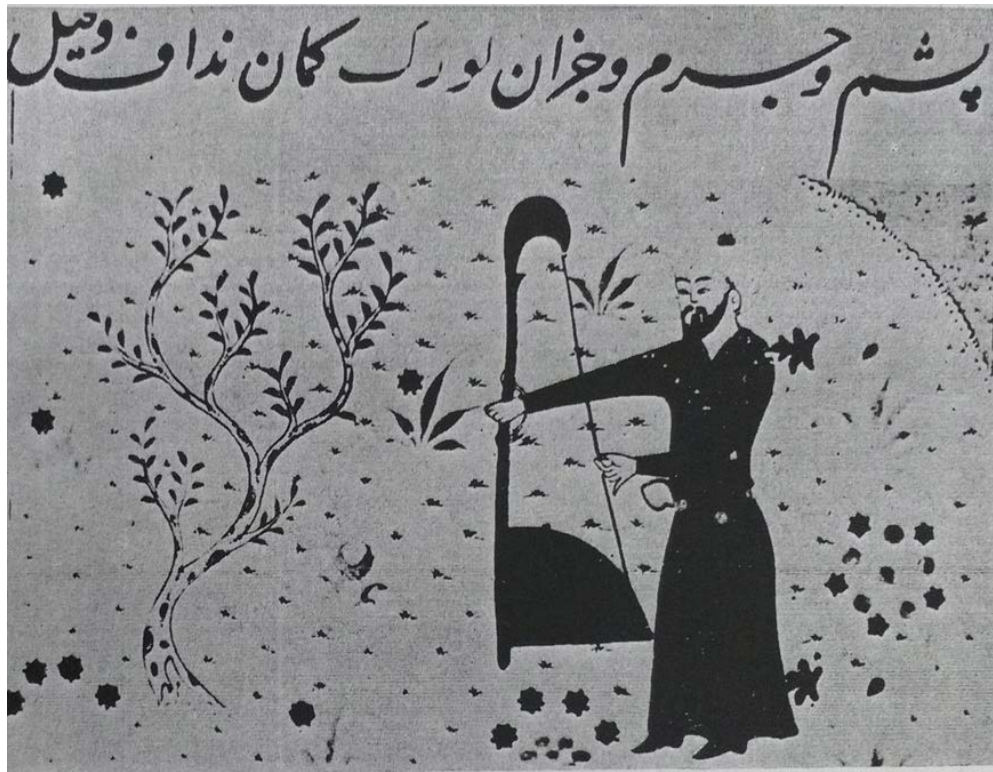 پشم و جرم و جزان لورک کمان نداف و حیل